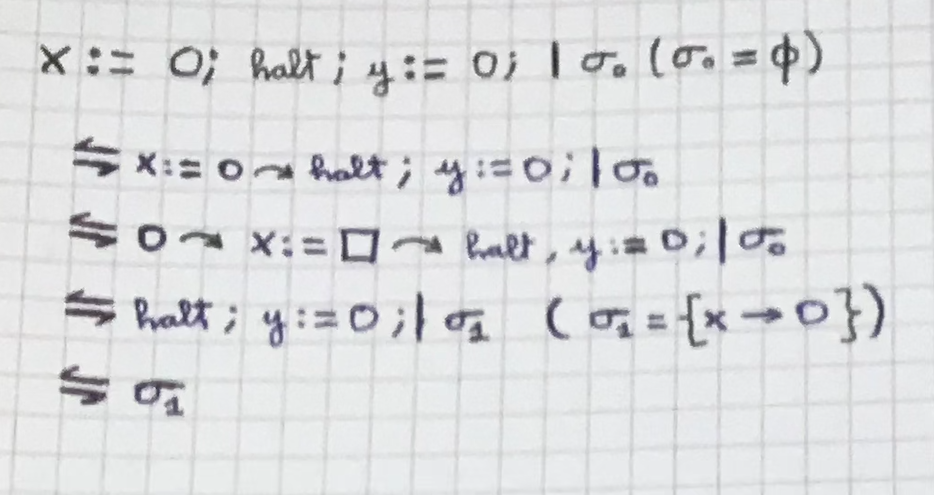 x := 0; halt; y := 0; | σ₀ (σ₀ = ϕ)
⇋ x := 0 ↝ halt; y := 0; | σ₀
⇋ 0 ↝ x := □ ↝ halt, y := 0; | σ₀
⇋ halt; y := 0; | σ₁ ( σ₁ = {x → 0})
⇋ σ₁